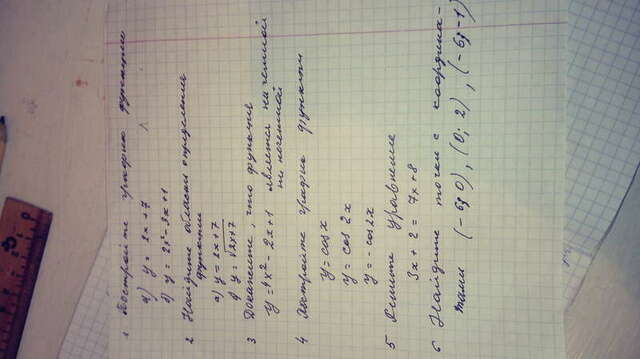 1 Постройте график функции
а) y = 2x + 7
б) y = 2x² - 3x + 1
2 Найдите область определения
функции
а) y = 2x + 7
б) y = √2x+7
3 Докажите, что функция
y = 4x² - 2x + 1 является ни четной
ни нечетной
4 Постройте график функции
y = cos x
y = cos 2x
y = - cos 2x
5 Решите уравнение
3x + 2 = 7x + 8
6 Найдите точки с координа-
тами (-6; 0), (0; 2), (-6; -1)